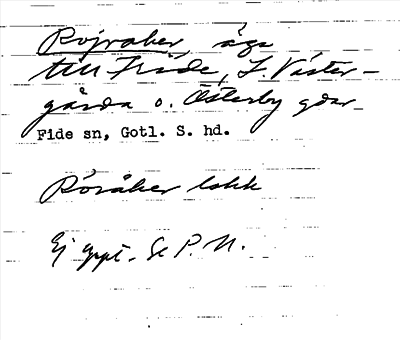 Rojråker, äga
till Fride, L. Väster-
gårda o. Österby gdar_
Fide sn, Gotl. S. hd.
Röråker lokk
Ej uppt. Se P.N.